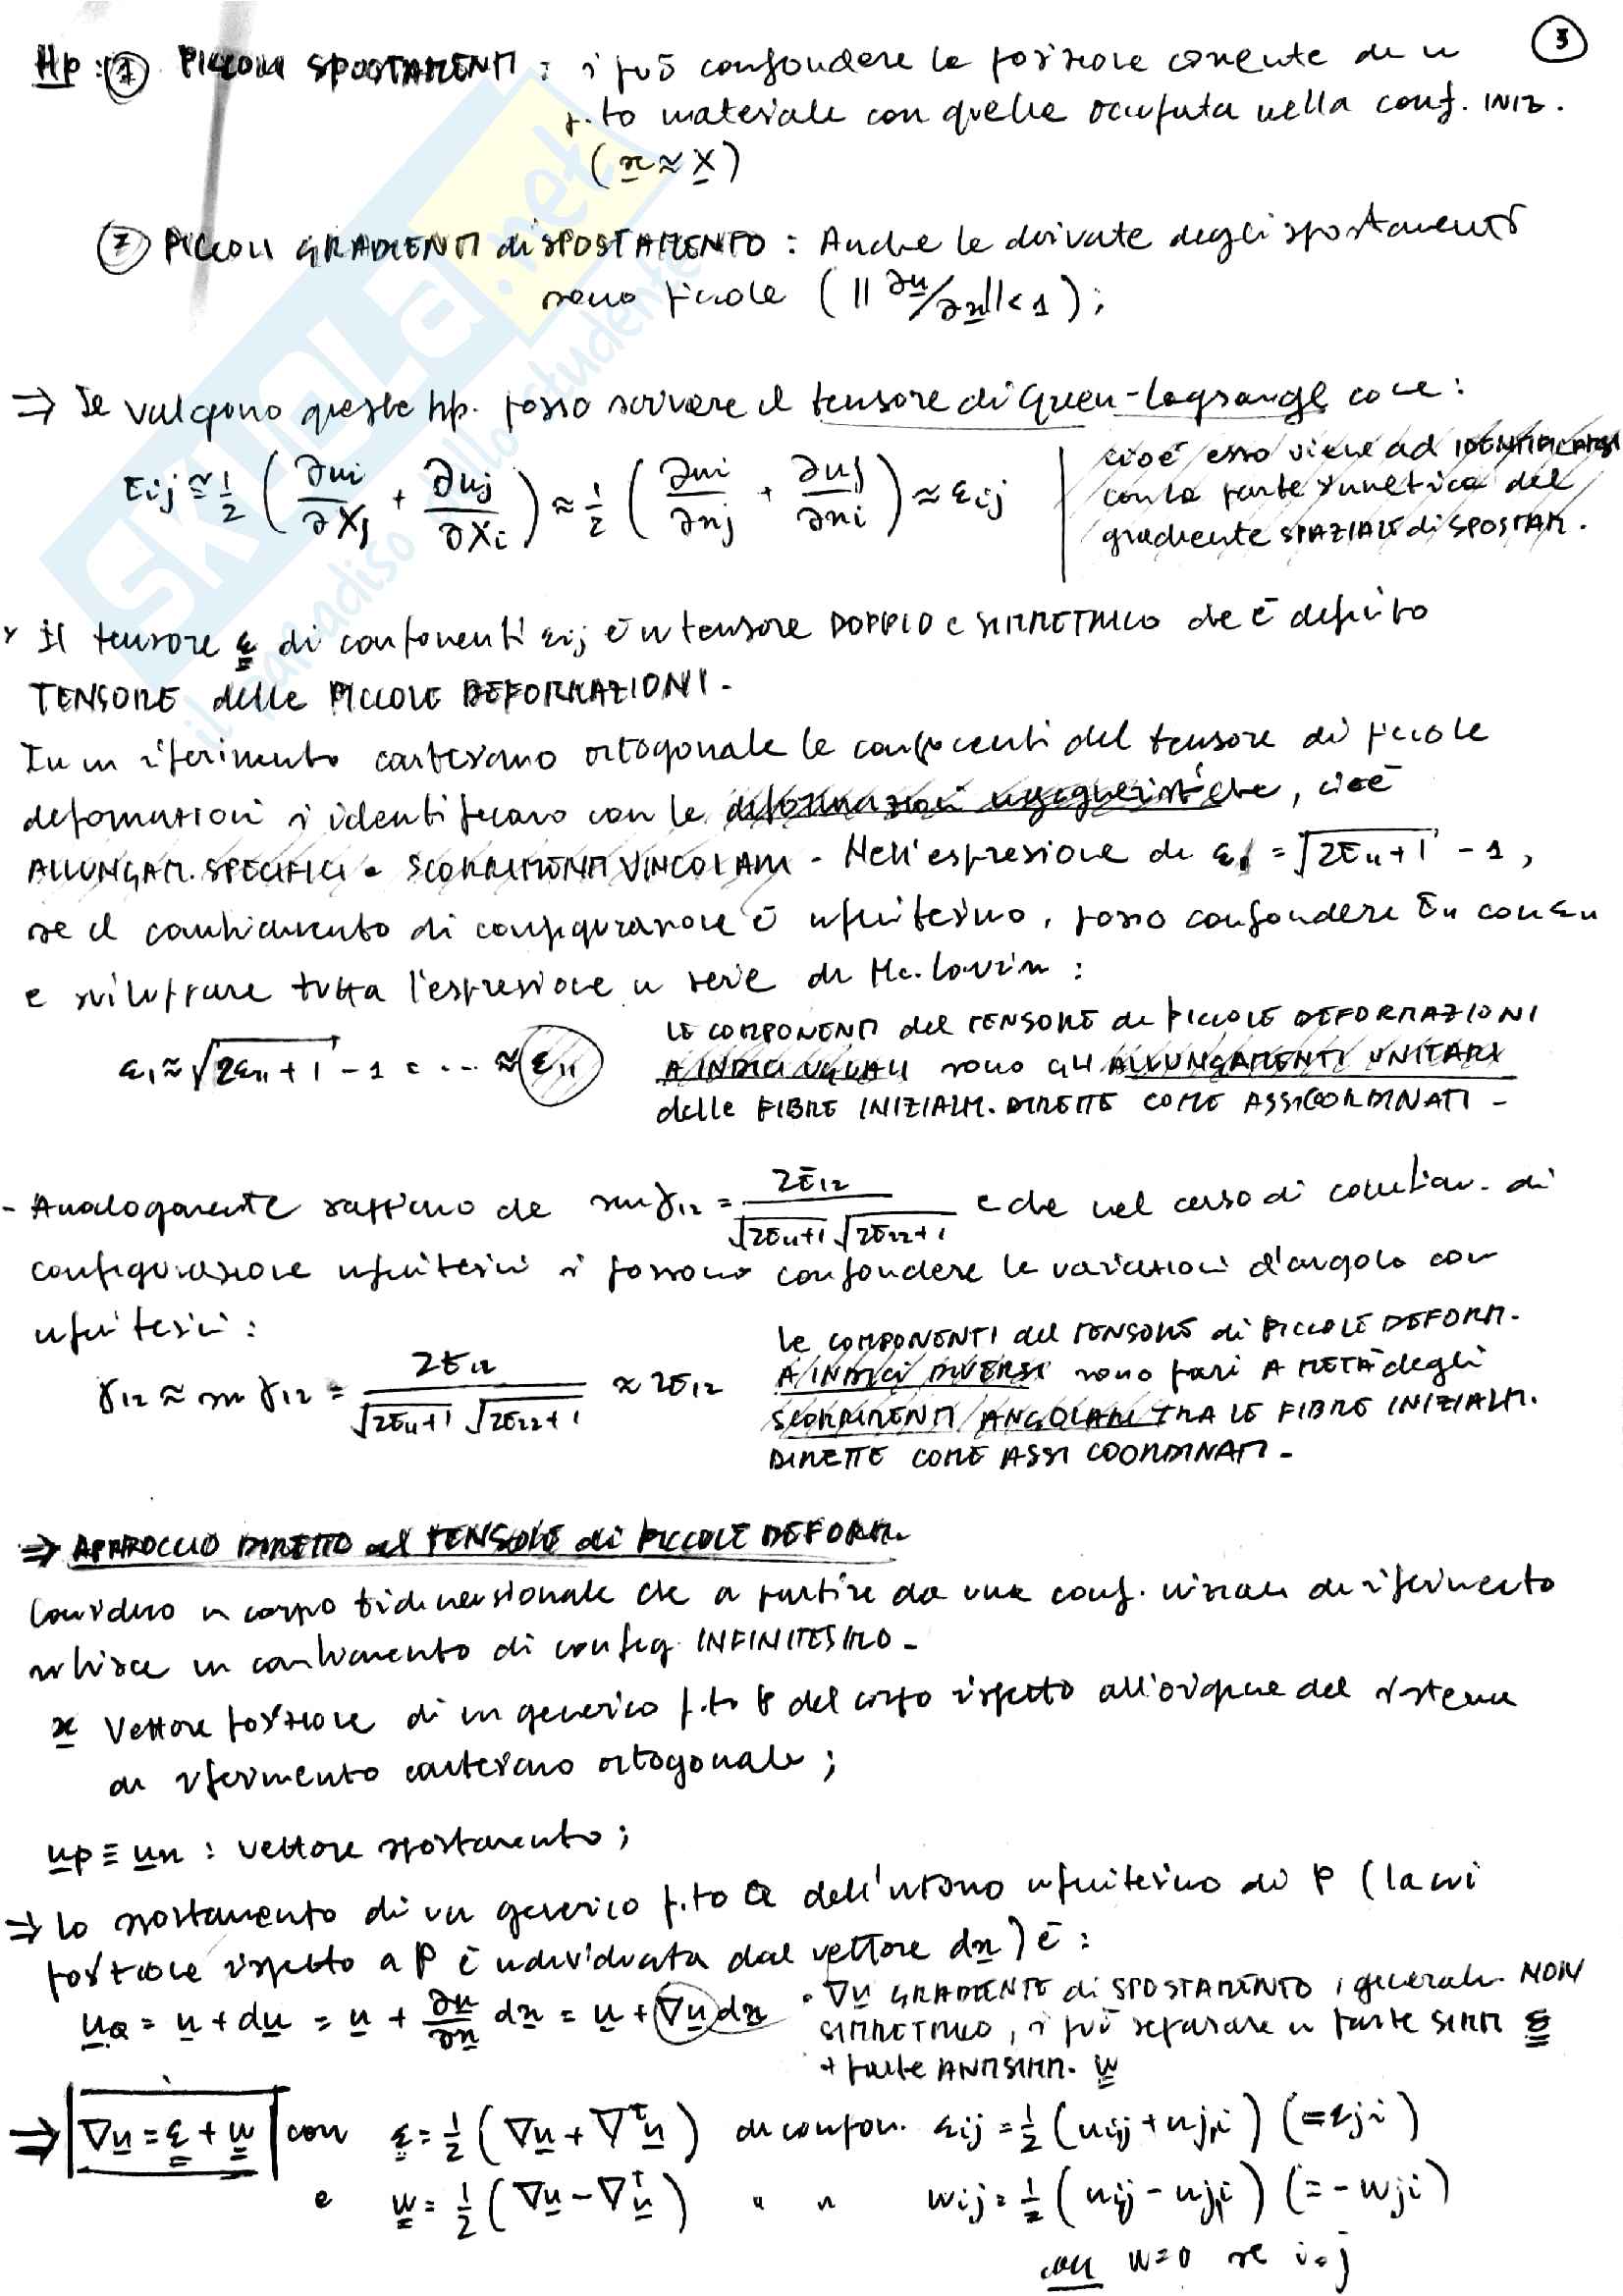 3
Hp: 1 PICCOLI SPOSTAMENTI: si può confondere la posizione corrente di un
p.to materiale con quella occupata nella conf. INIZ.
(x ≈ X)
2 PICCOLI GRADIENTI di SPOSTAMENTO: Anche le derivate degli spostamenti
sono piccole (|| ∂u/∂x || < 1);
⇒ Se valgono queste hp. posso scrivere il tensore di Green-Lagrange come:
Eij ≅ 1/2 (∂ui/∂Xj + ∂uj/∂Xi) ≈ 1/2 (∂ui/∂xj + ∂uj/∂xi) ≈ εij
cioè esso viene ad IDENTIFICARSI
con la parte simmetrica del
gradiente SPAZIALE di SPOSTAM.
Il tensore ε di componenti εij è un tensore DOPPIO e SIMMETRICO che è definito
TENSORE delle PICCOLE DEFORMAZIONI.
In un riferimento cartesiano ortogonale le componenti del tensore di piccole
deformazioni si identificano con le deformazioni ingegneristiche, cioè
ALLUNGAM. SPECIFICI e SCORRIMENTI ANGOLARI. Nell'espressione di ε1 = √(2E11+1) - 1,
se il cambiamento di configurazione è infinitesimo, posso confondere E11 con ε11
e sviluppare tutta l'espressione in serie di Mc. Laurin:
ε1 ≈ √(2ε11 + 1) - 1 = ... ≈ ε11
LE COMPONENTI del TENSORE di PICCOLE DEFORMAZIONI
A INDICI UGUALI sono gli ALLUNGAMENTI UNITARI
delle FIBRE INIZIALM. DIRETTE COME ASSI COORDINATI -
- Analogamente sappiamo che sin γ12 = 2E12 / √(2E11+1) √(2E22+1) e che nel caso di cambiam. di
configurazione infinitesimi si possono confondere le variazioni d'angolo con
infinitesimi:
γ12 ≈ sin γ12 = 2E12 / √(2E11+1) √(2E22+1) ≈ 2E12
le COMPONENTI del TENSORE di PICCOLE DEFORM.
A INDICI DIVERSI sono pari A METÀ degli
SCORRIMENTI ANGOLARI TRA LE FIBRE INIZIALM.
DIRETTE COME ASSI COORDINATI -
⇒ APPROCCIO DIRETTO al TENSORE di PICCOLE DEFORM.
Considero un corpo tridimensionale che a partire da una conf. iniziale di riferimento
subisce un cambiamento di config. INFINITESIMO -
x Vettore posizione di un generico p.to P del corpo rispetto all'origine del sistema
di riferimento cartesiano ortogonale;
up ≡ ux : vettore spostamento;
⇒ Lo spostamento di un generico p.to Q dell'intorno infinitesimo di P (la cui
posizione rispetto a P è individuata dal vettore dx) è:
uQ = u + du = u + ∂u/∂x dx = u + ∇u dx
• ∇u GRADIENTE di SPOSTAMENTO, generalm. NON
SIMMETRICO, si può separare in parte SIMM ε
+ parte ANTISIMM. w
⇒ ∇u = ε + w con ε = 1/2 (∇u + ∇ᵀu) di compon. εij = 1/2 (ui,j + uj,i) (= εji)
e w = 1/2 (∇u - ∇ᵀu) " " wij = 1/2 (ui,j - uj,i) (= - wji)
con w=0 se i=j
SKUOLA.net
il paradiso dello studente